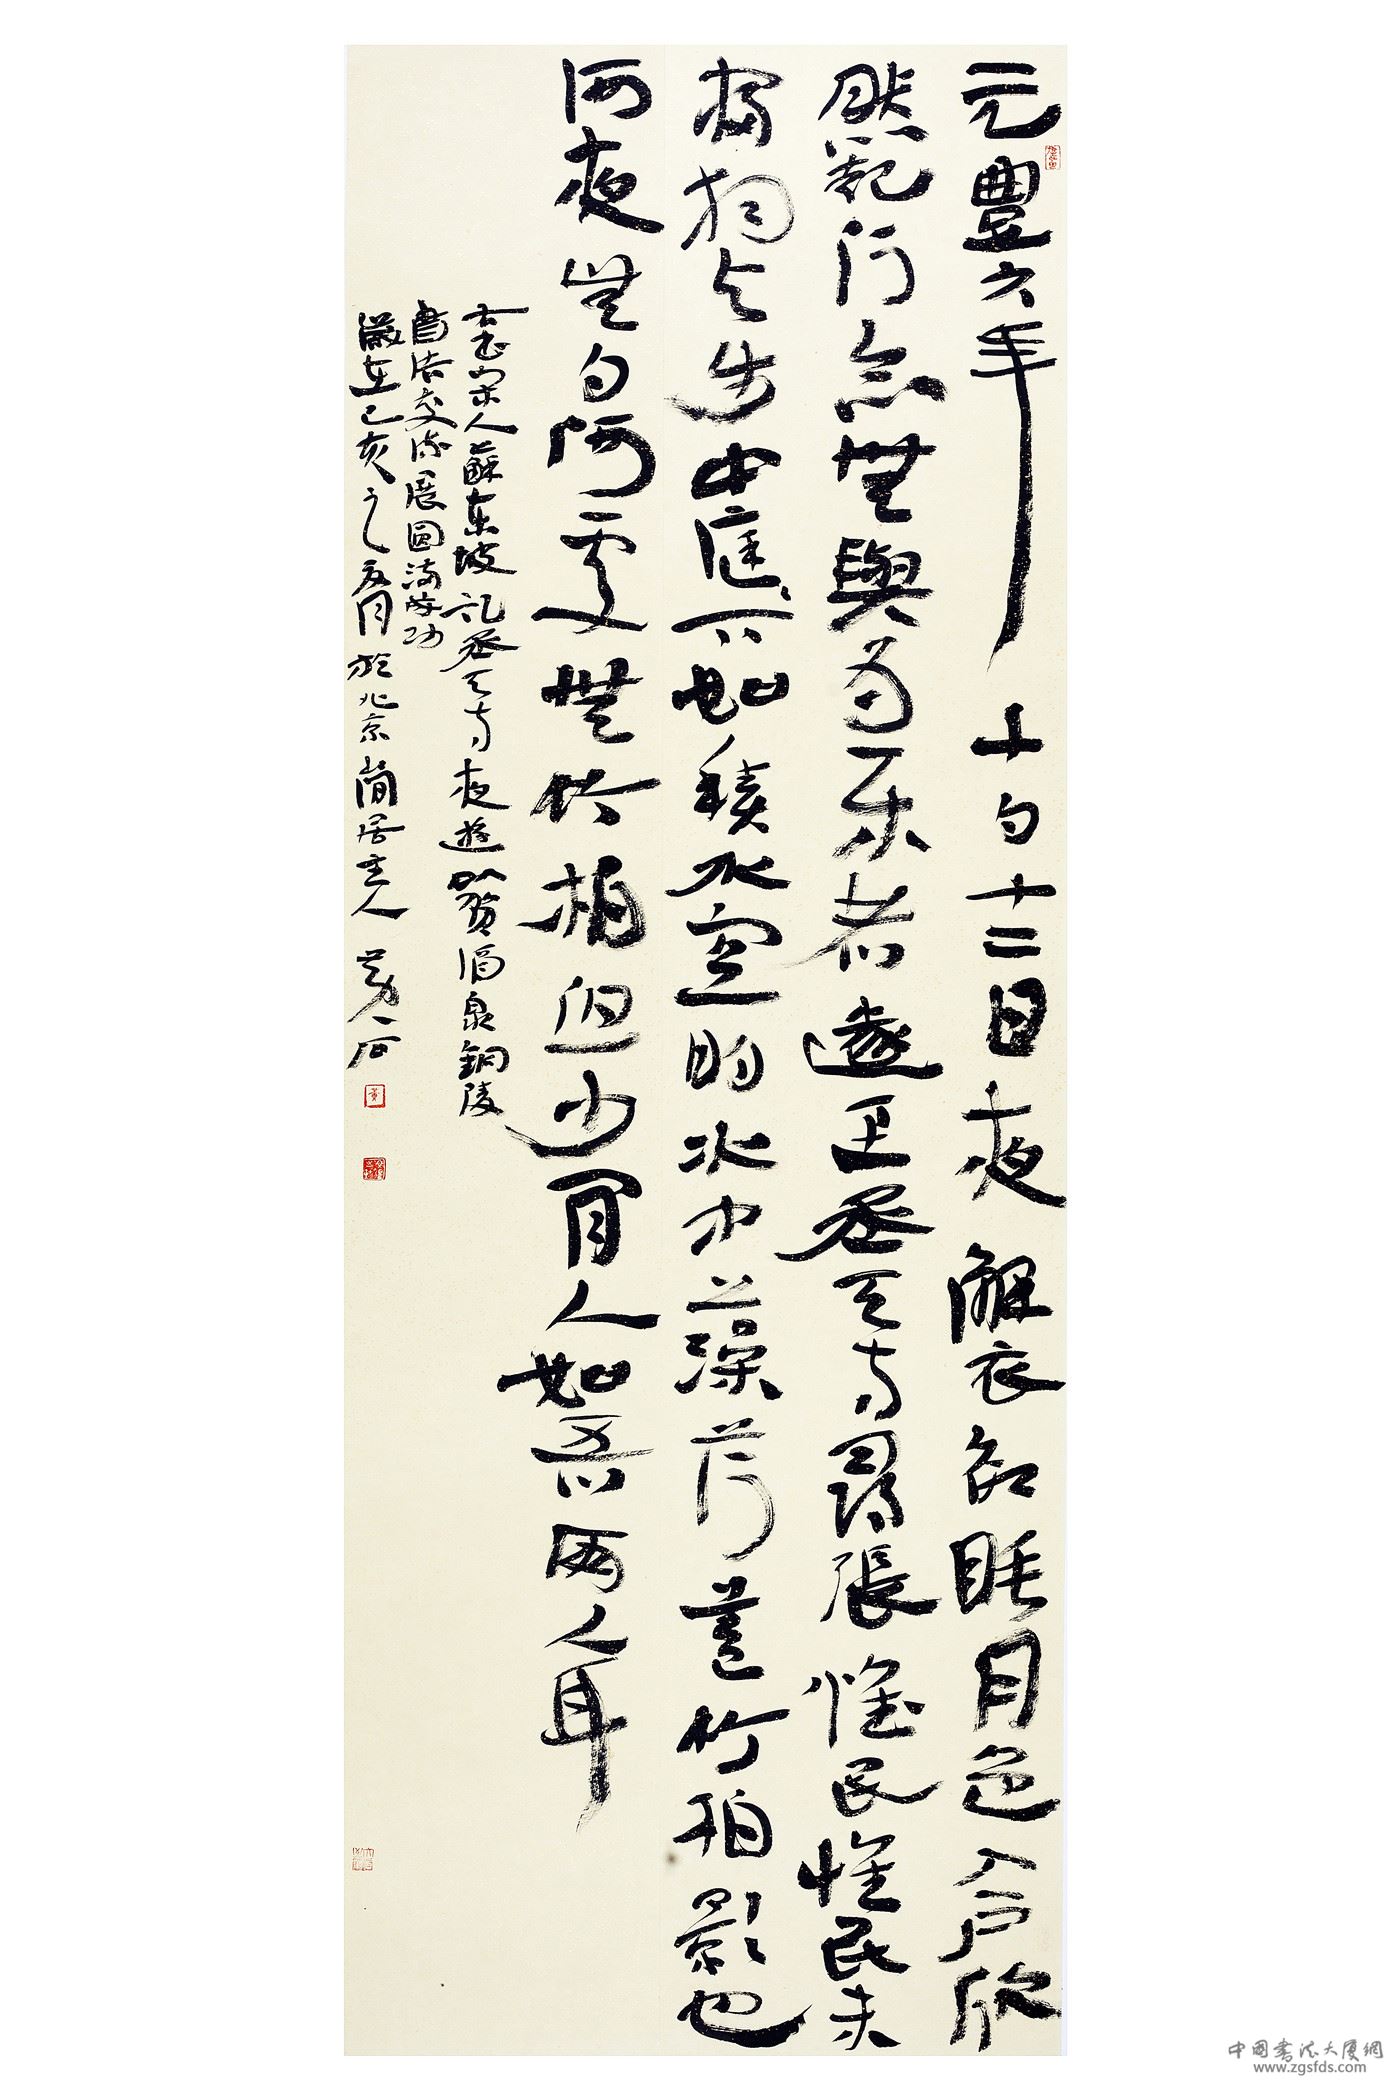 元豐六年十月十二日夜解衣欲睡月色入戶欣
然起行念無與为樂者遂至承天寺尋張懷民懷民未
寢相与步中庭〻下如積水空明水中藻荇蓋竹柏影也
何夜無月何處無竹柏但少閒人如吾兩人耳
右書宋人蘇東坡記承天寺夜遊賀酒泉銅陵
書法交流展圓滿成功
歲在己亥之夏月於北京簡居主人黄
中国書法大廈網
www.zgsfds.com